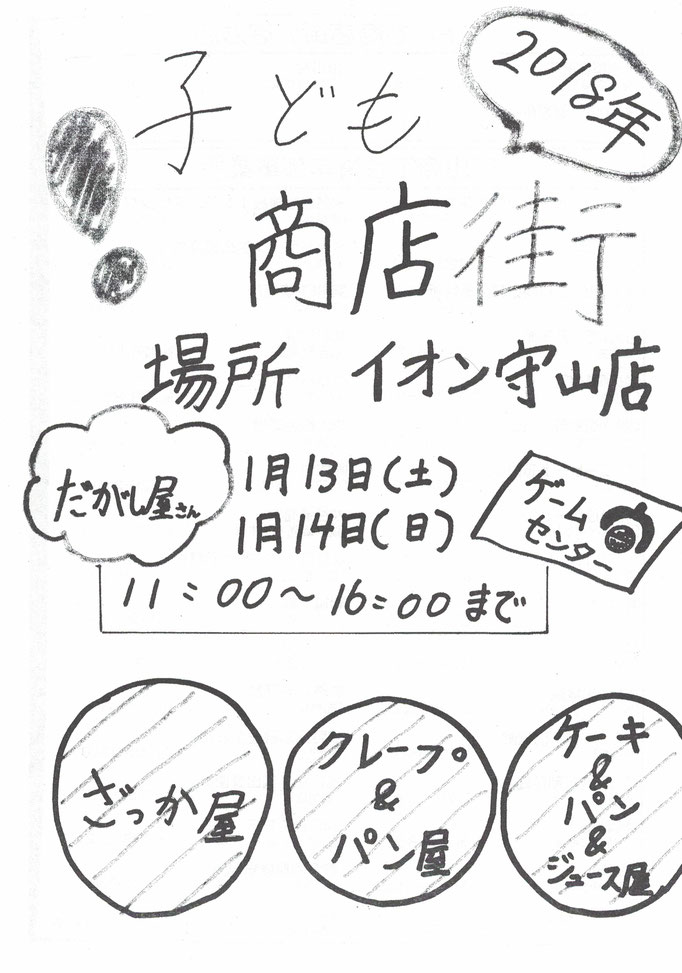 2018年
子ども
商店街
場所 イオン守山店
だがし屋さん
1月13日(土)
1月14日(日)
ゲーム
センター
11:00~16:00まで
ざっか屋
クレープ
&
パン屋
ケーキ
&
パン
&
ジュース屋